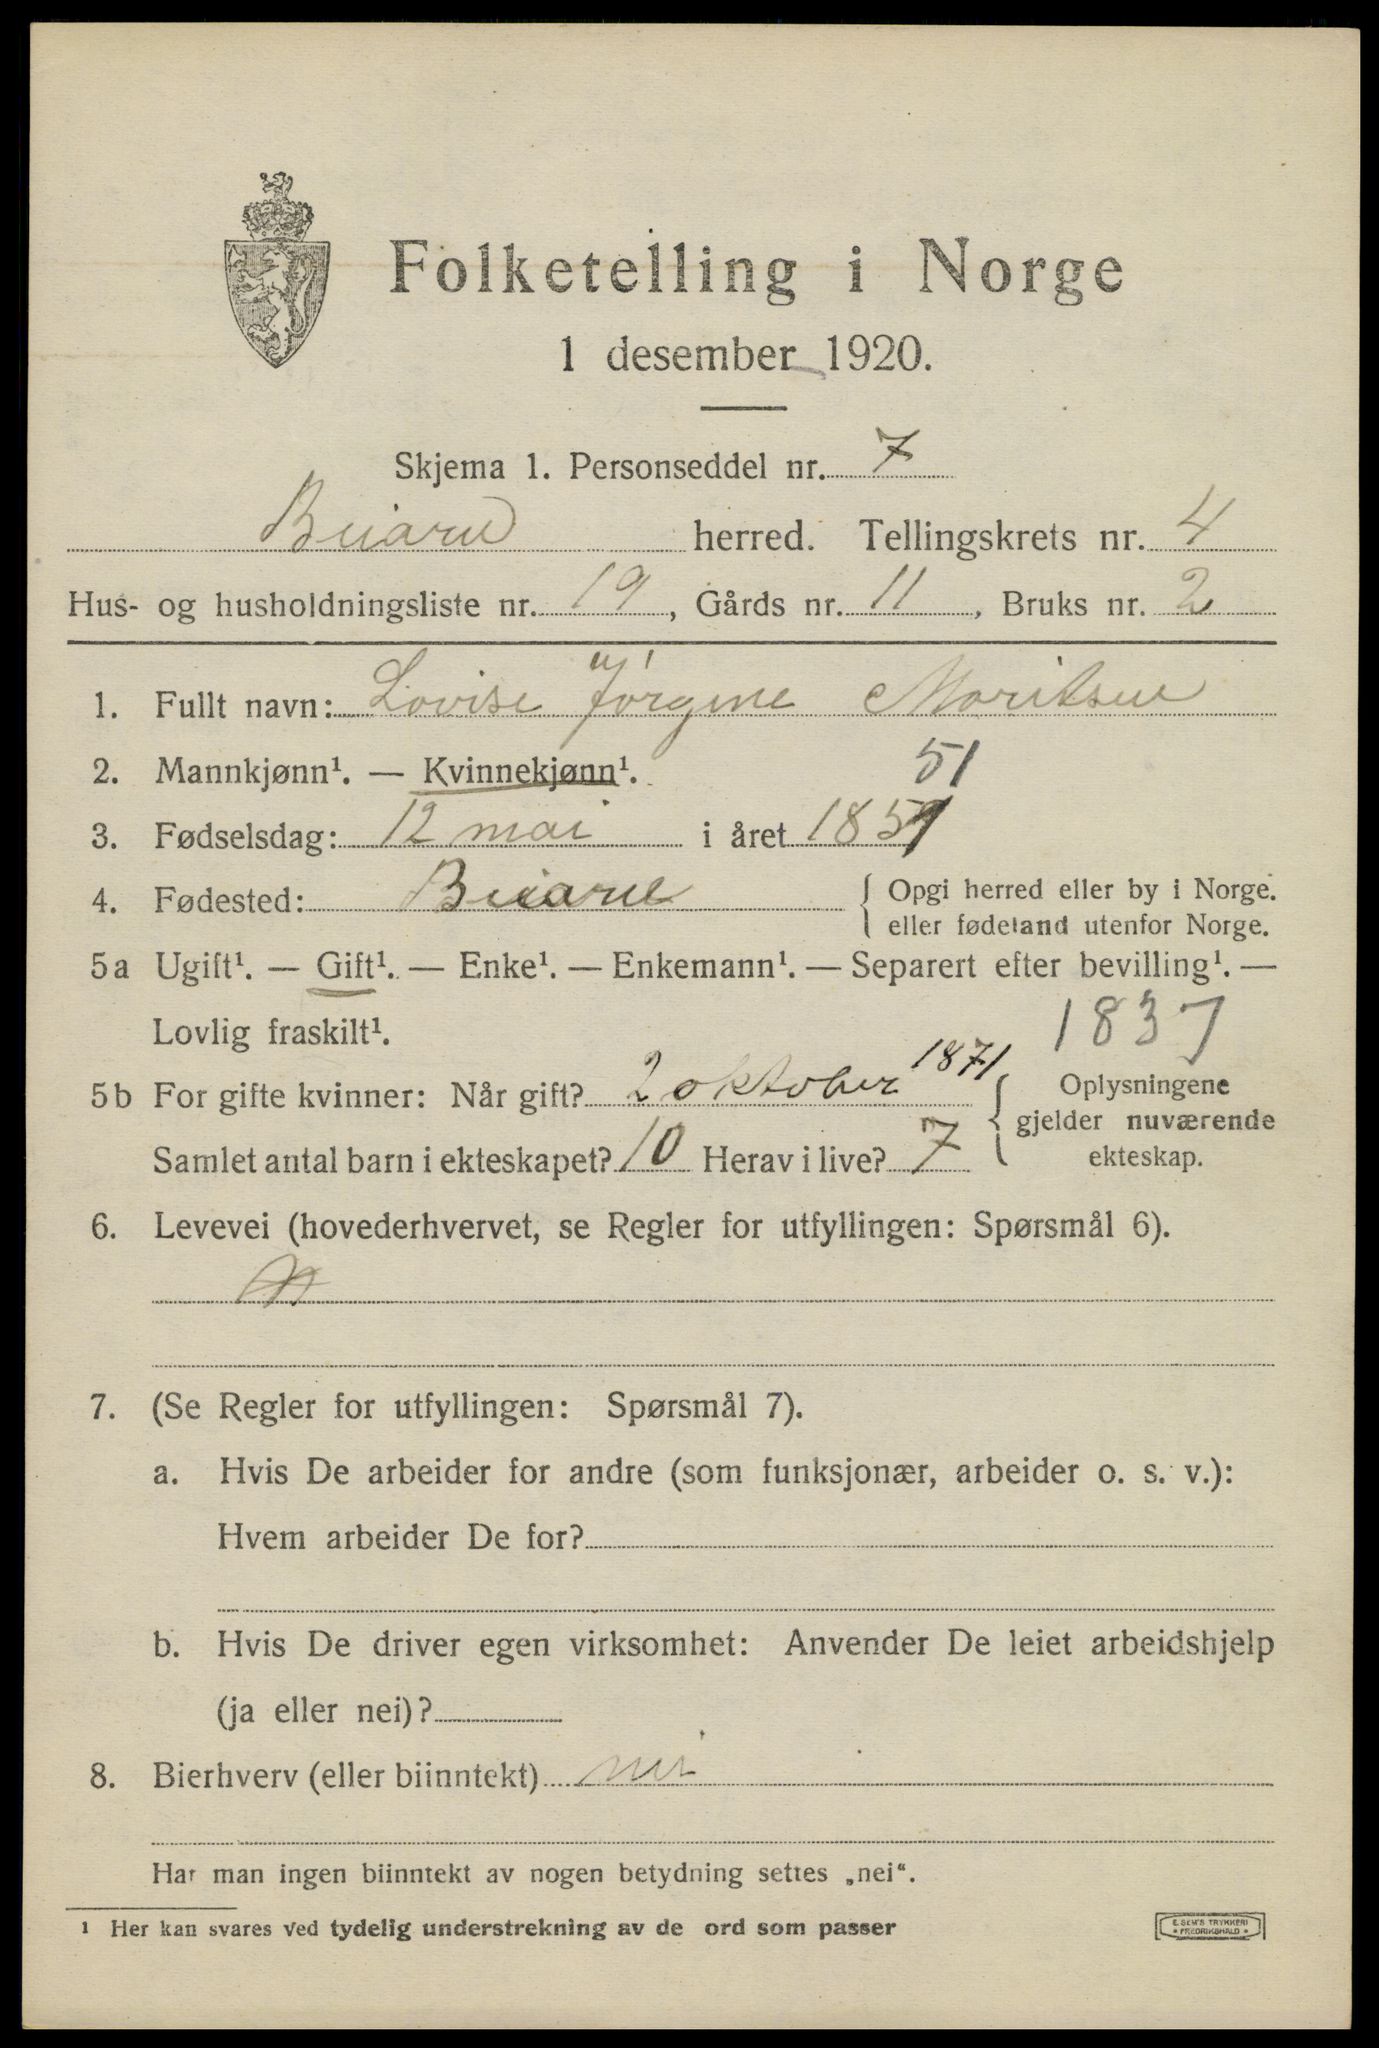 Folketelling i Norge
1 desember 1920.
Skjema 1. Personseddel nr. 7
Beiarn herred. Tellingskrets nr. 4
Hus- og husholdningsliste nr. 19, Gårds nr. 11, Bruks nr. 2
1. Fullt navn: Lovise Jørgine Moritsen
2. Mannkjønn¹. — Kvinnekjønn¹.
51
3. Fødselsdag: 12 mai i året 1851
4. Fødested: Beiarn { Opgi herred eller by i Norge.
eller fødeland utenfor Norge.
5a Ugift¹. — Gift¹. — Enke¹. — Enkemann¹. — Separert efter bevilling¹. —
Lovlig fraskilt¹.
1837
5b For gifte kvinner: Når gift? 2 oktober 1871 { Oplysningene
gjelder nuværende
ekteskap.
Samlet antal barn i ekteskapet? 10 Herav i live? 7
6. Levevei (hovederhvervet, se Regler for utfyllingen: Spørsmål 6).
7. (Se Regler for utfyllingen: Spørsmål 7).
a. Hvis De arbeider for andre (som funksjonær, arbeider o. s. v.):
Hvem arbeider De for?
b. Hvis De driver egen virksomhet: Anvender De leiet arbeidshjelp
(ja eller nei)?
8. Bierhverv (eller biinntekt) nei
Har man ingen biinntekt av nogen betydning settes „nei“.
¹ Her kan svares ved tydelig understrekning av de ord som passer
E. SEM'S TRYKKERI
* FREDRIKSHALD *